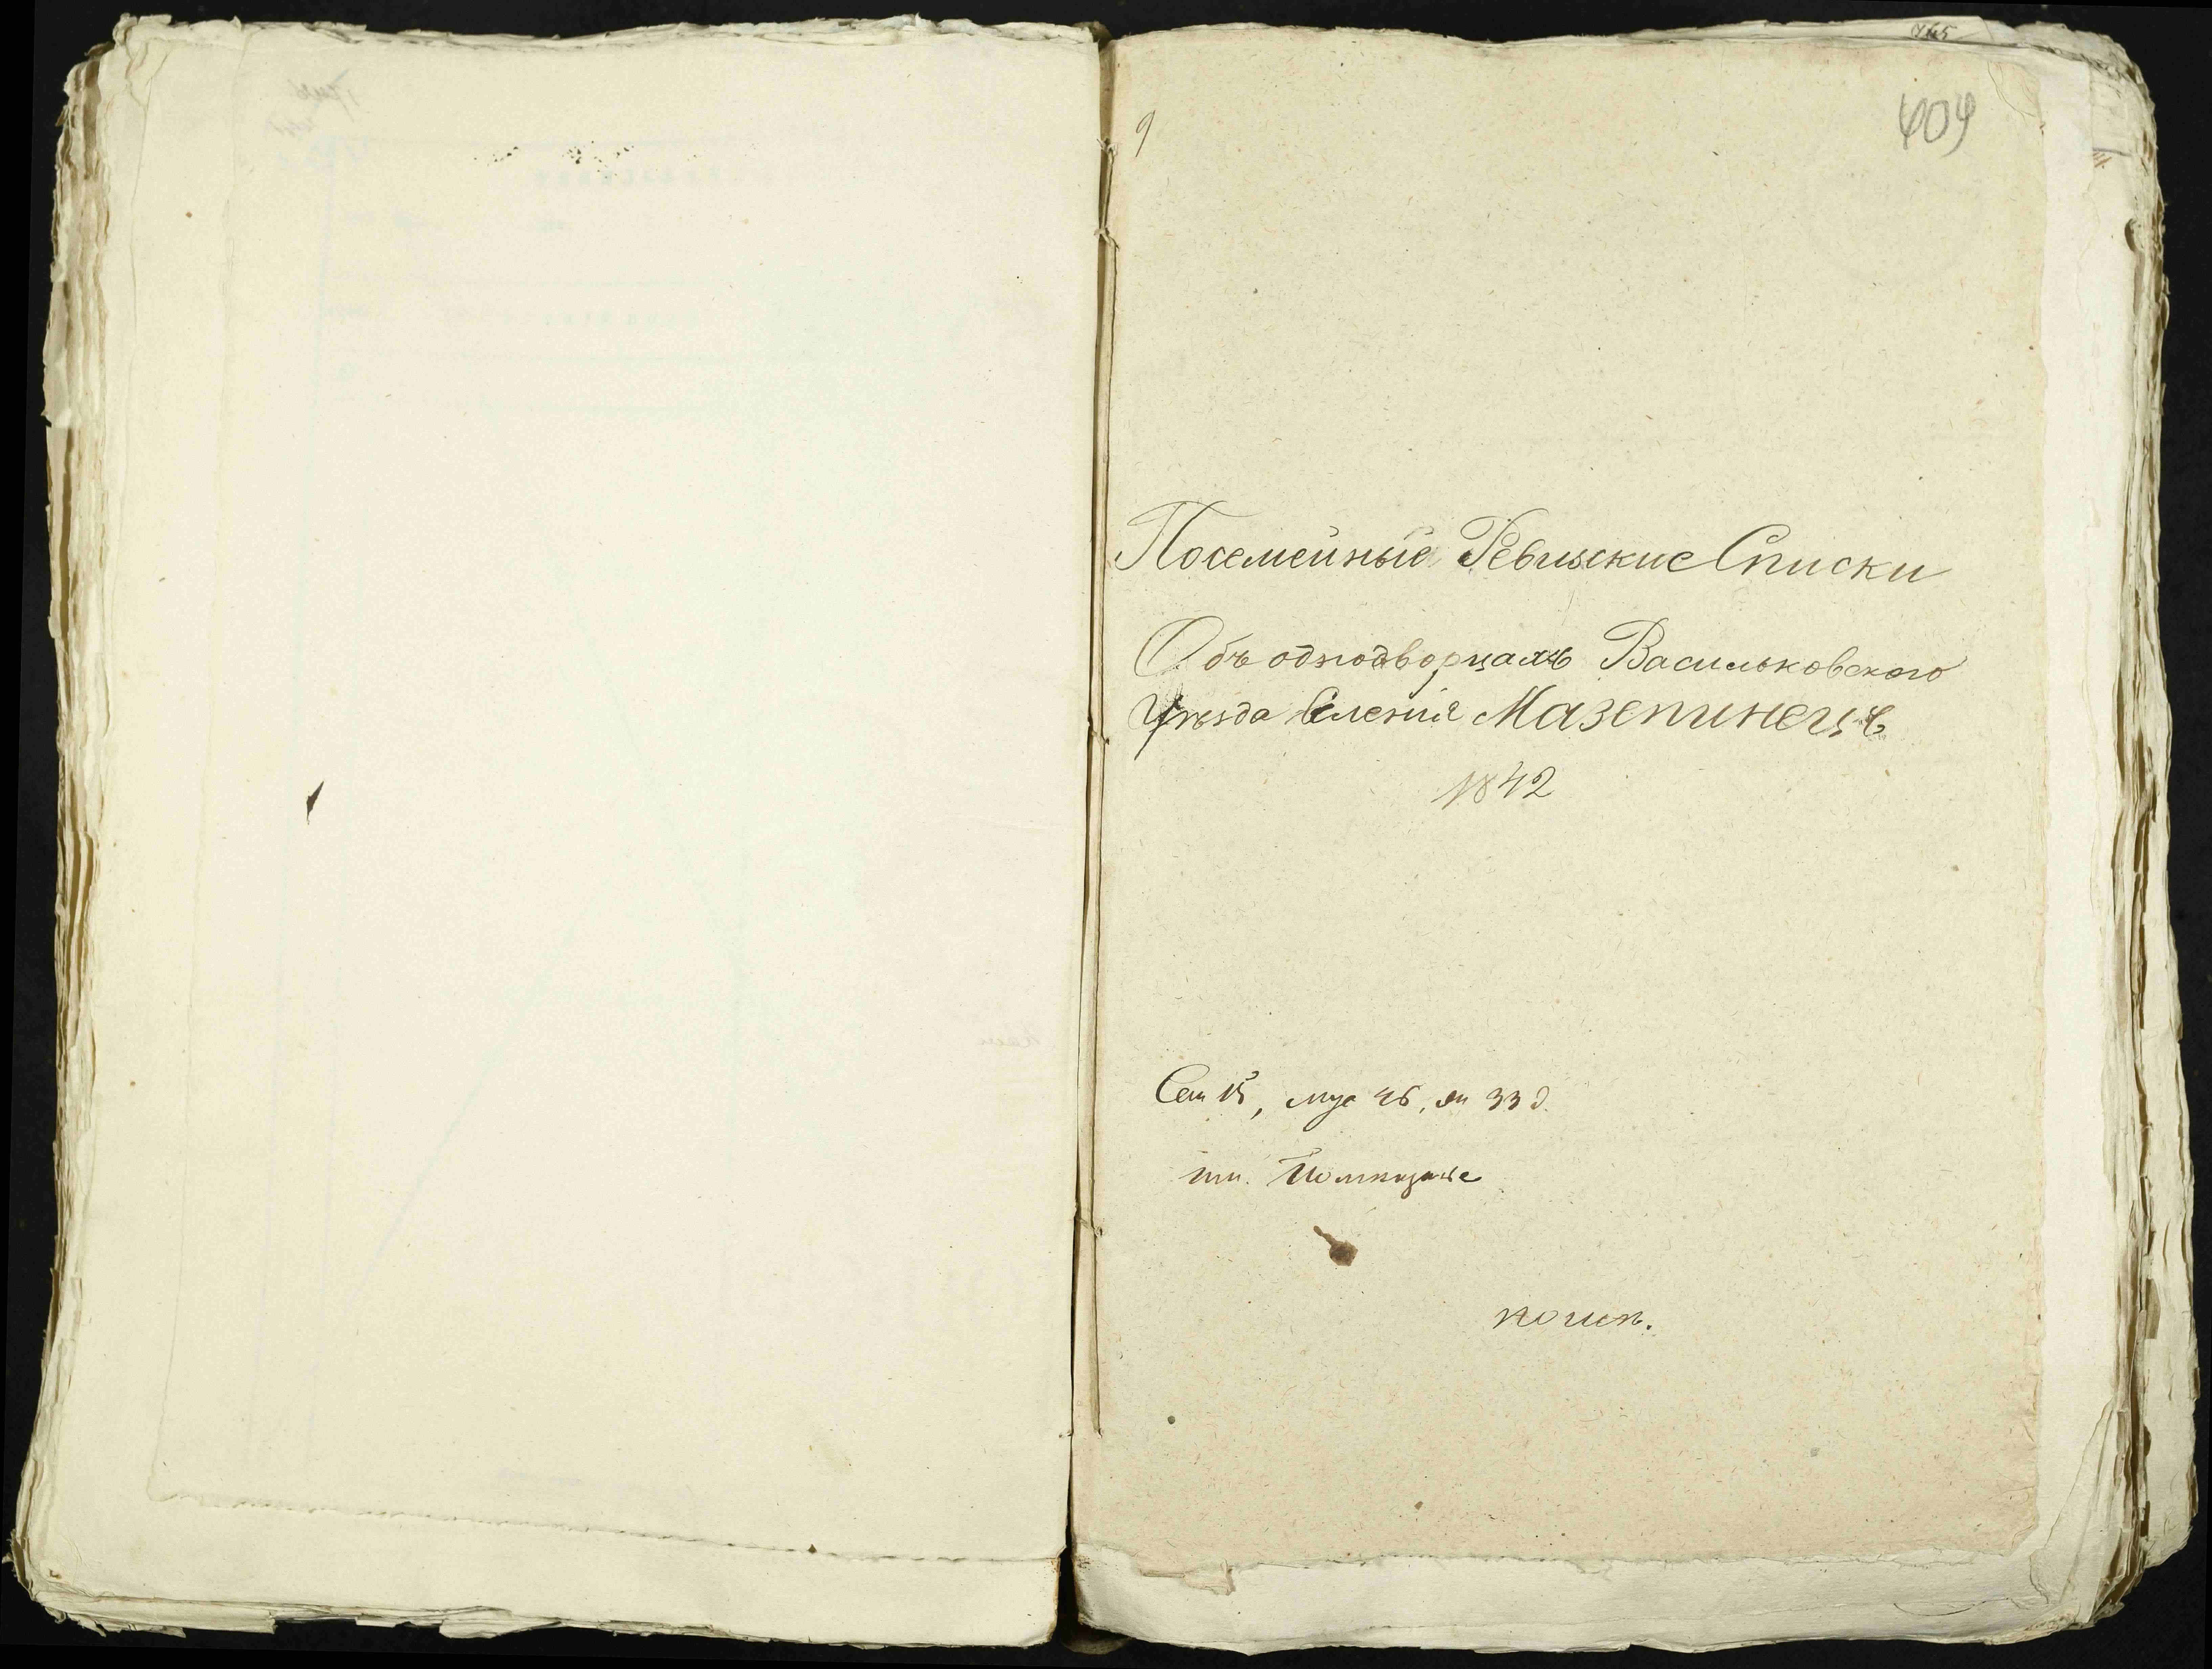 765
409
9
Посемейные Ревизские Списки
Объ однодворцахъ Васильковского
Уѣзда Селенія Мазепинецъ
1842
Сем 15, муж 46, жн 33 д.